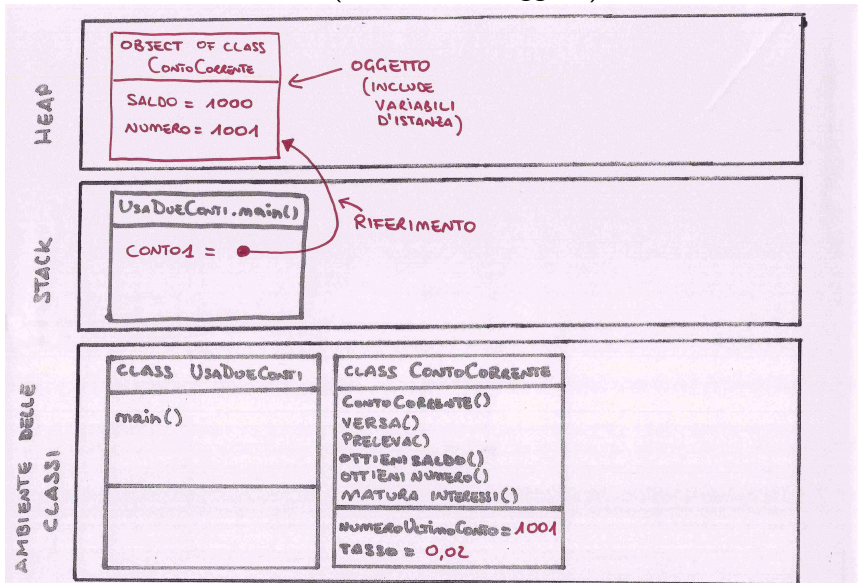 HEAP
OBJECT OF CLASS
ContoCorrente
SALDO = 1000
NUMERO = 1001
OGGETTO
(INCLUDE
VARIABILI
D'ISTANZA)
STACK
UsaDueConti.main()
CONTO1 =
RIFERIMENTO
AMBIENTE DELLE
CLASSI
CLASS UsaDueConti
main()
CLASS ContoCorrente
ContoCorrente()
VERSA()
PRELEVA()
OTTIENI SALDO()
OTTIENI NUMERO()
MATURA INTERESSI()
NUMEROUltimoConto = 1001
TASSO = 0,02